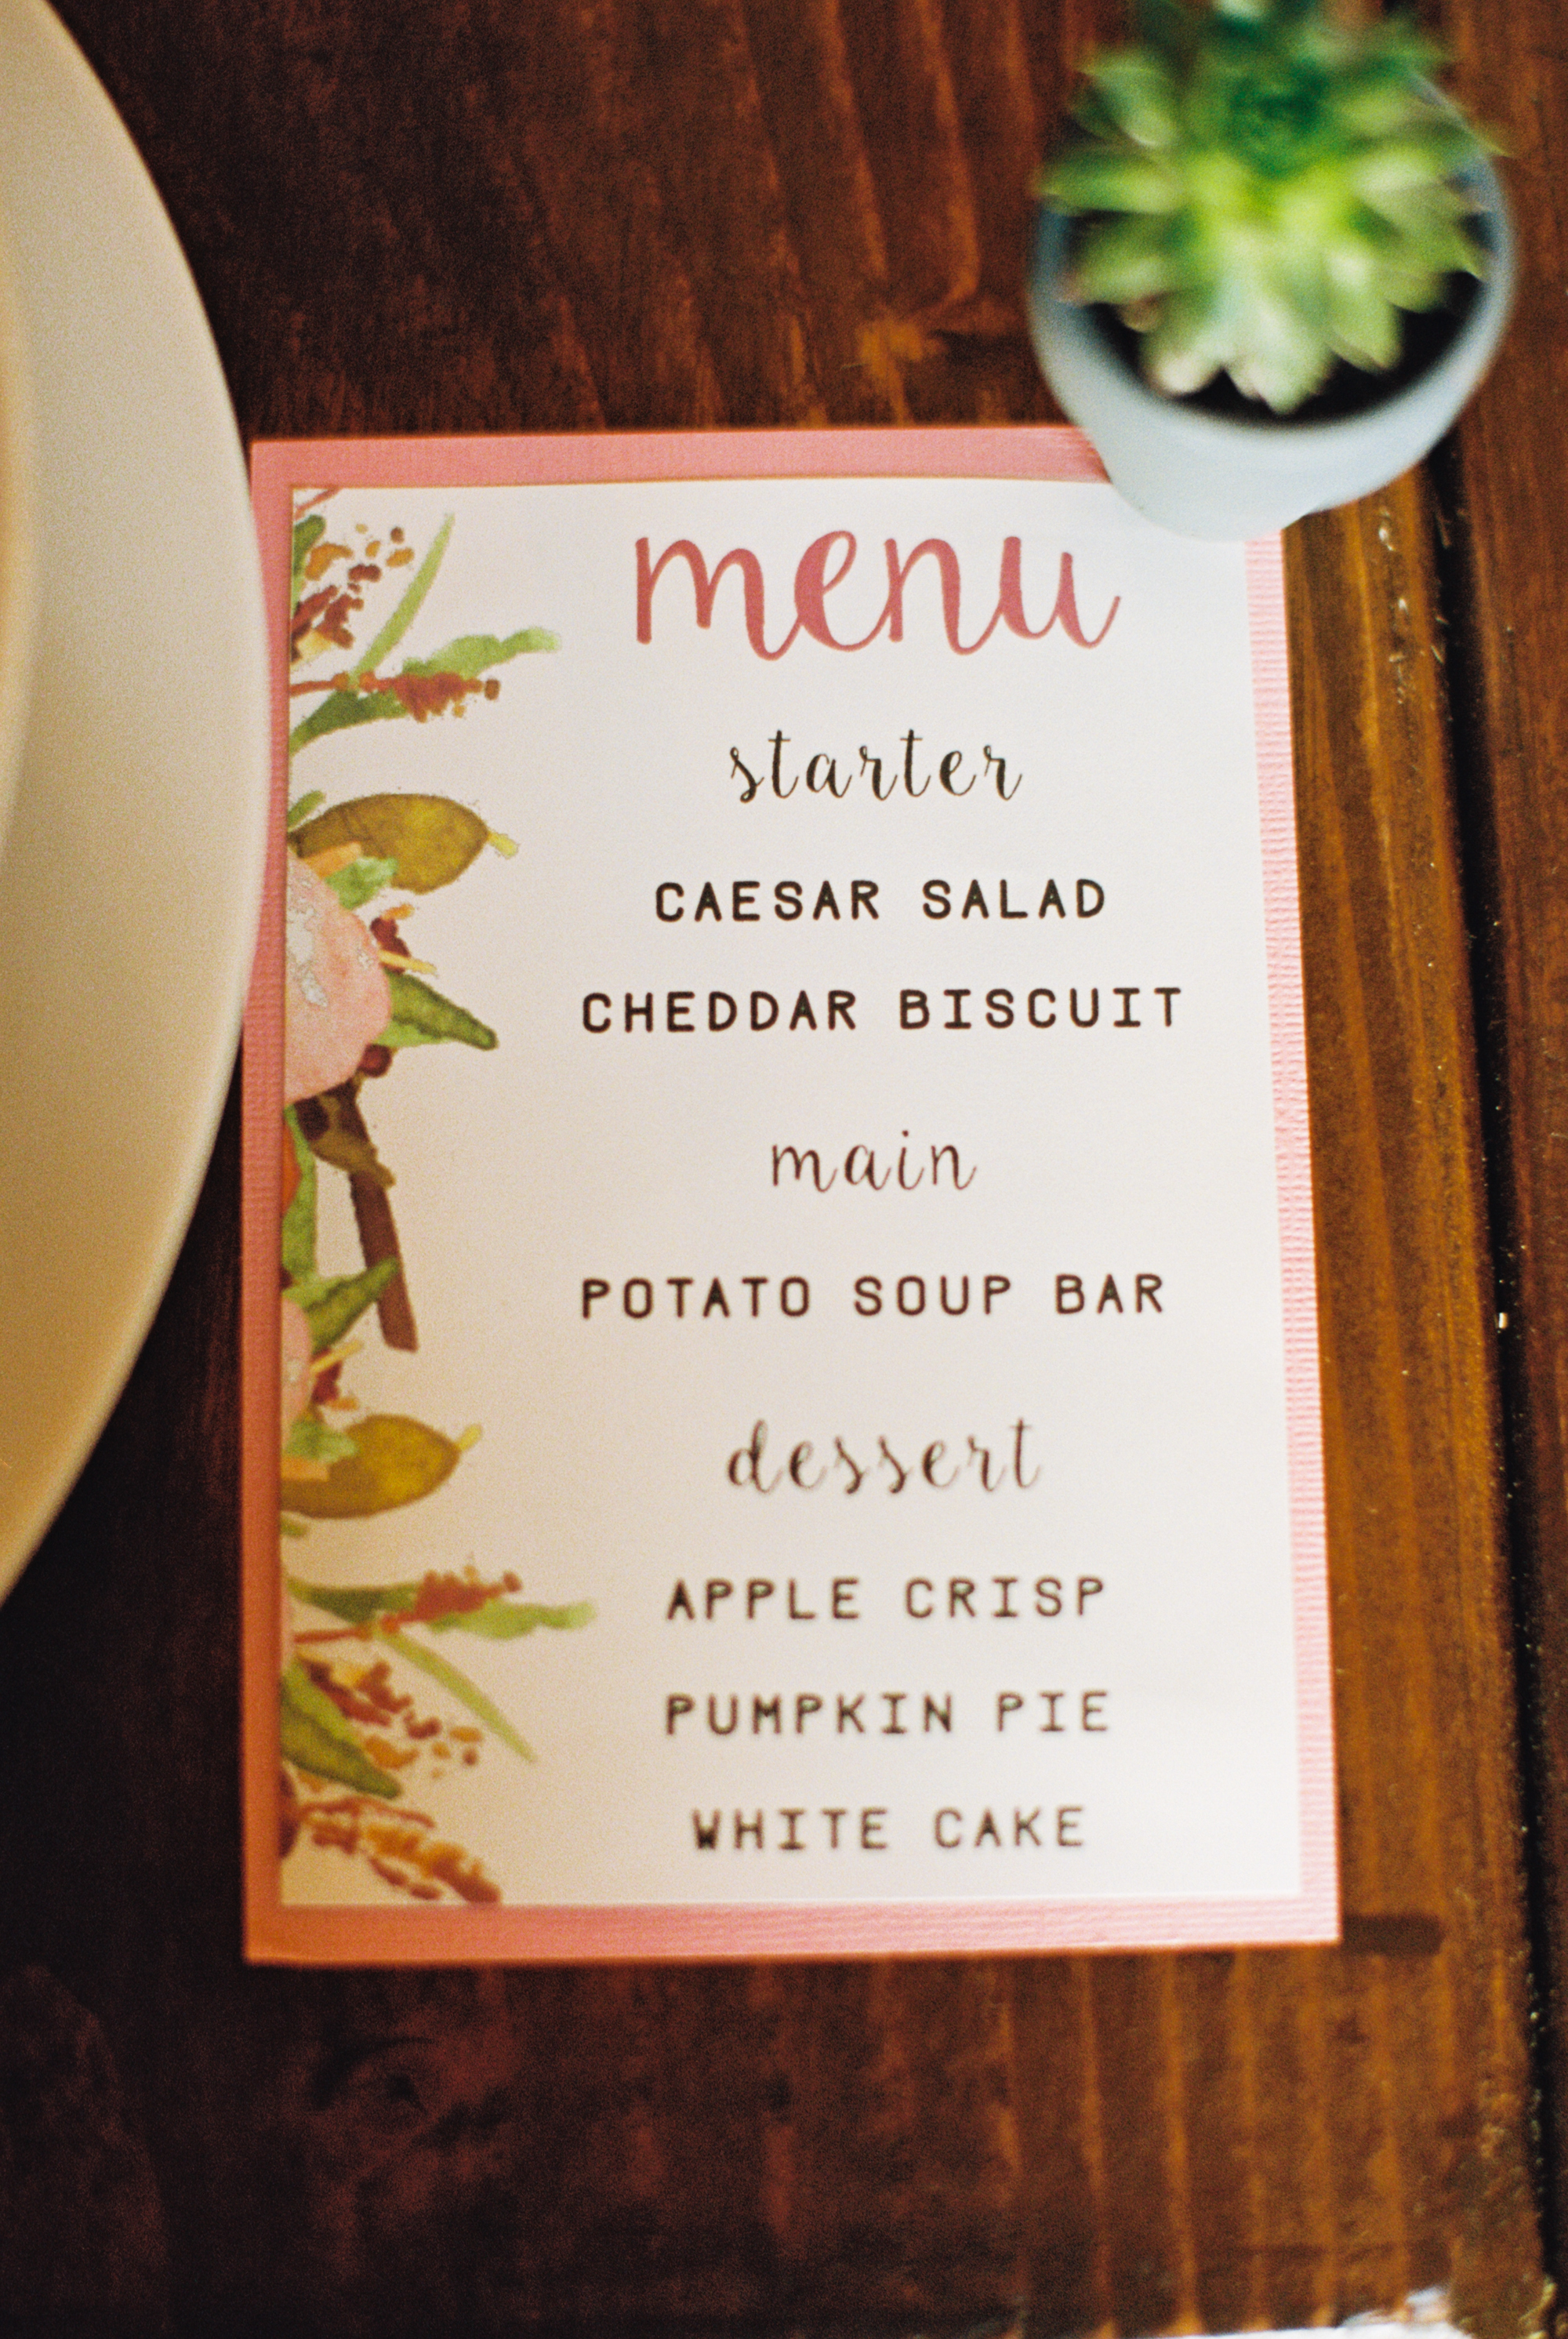 menu
starter
CAESAR SALAD
CHEDDAR BISCUIT
main
POTATO SOUP BAR
dessert
APPLE CRISP
PUMPKIN PIE
WHITE CAKE